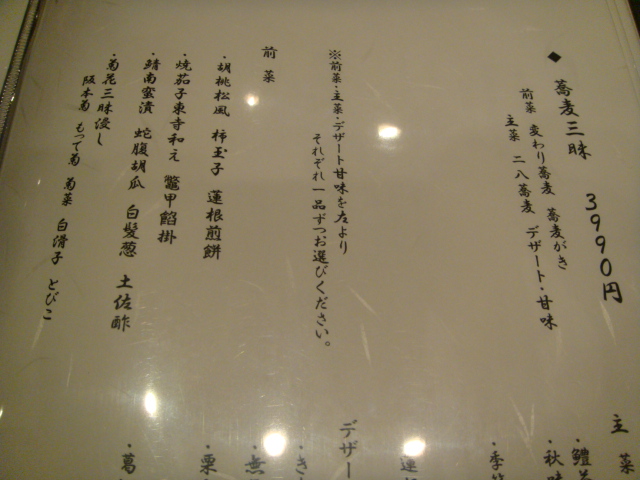 ◆ 蕎麦三昧 3990円
前菜 変わり蕎麦 蕎麦がき
主菜 二八蕎麦 デザート・甘味
※前菜・主菜・デザート甘味を左より
それぞれ一品ずつお選びください。
前菜
・胡桃松風 柿玉子 蓮根煎餅
・焼茄子東寺和え 鼈甲餡掛
・鯖南蛮漬 蛇腹胡瓜 白髪葱 土佐酢
・菊花三昧浸し
阪本菊 もって菊 菊菜 白滑子 とびこ
主菜
・鱧
・秋味
・季節
・蓮根
デザート
・き
・無
・栗
・葛